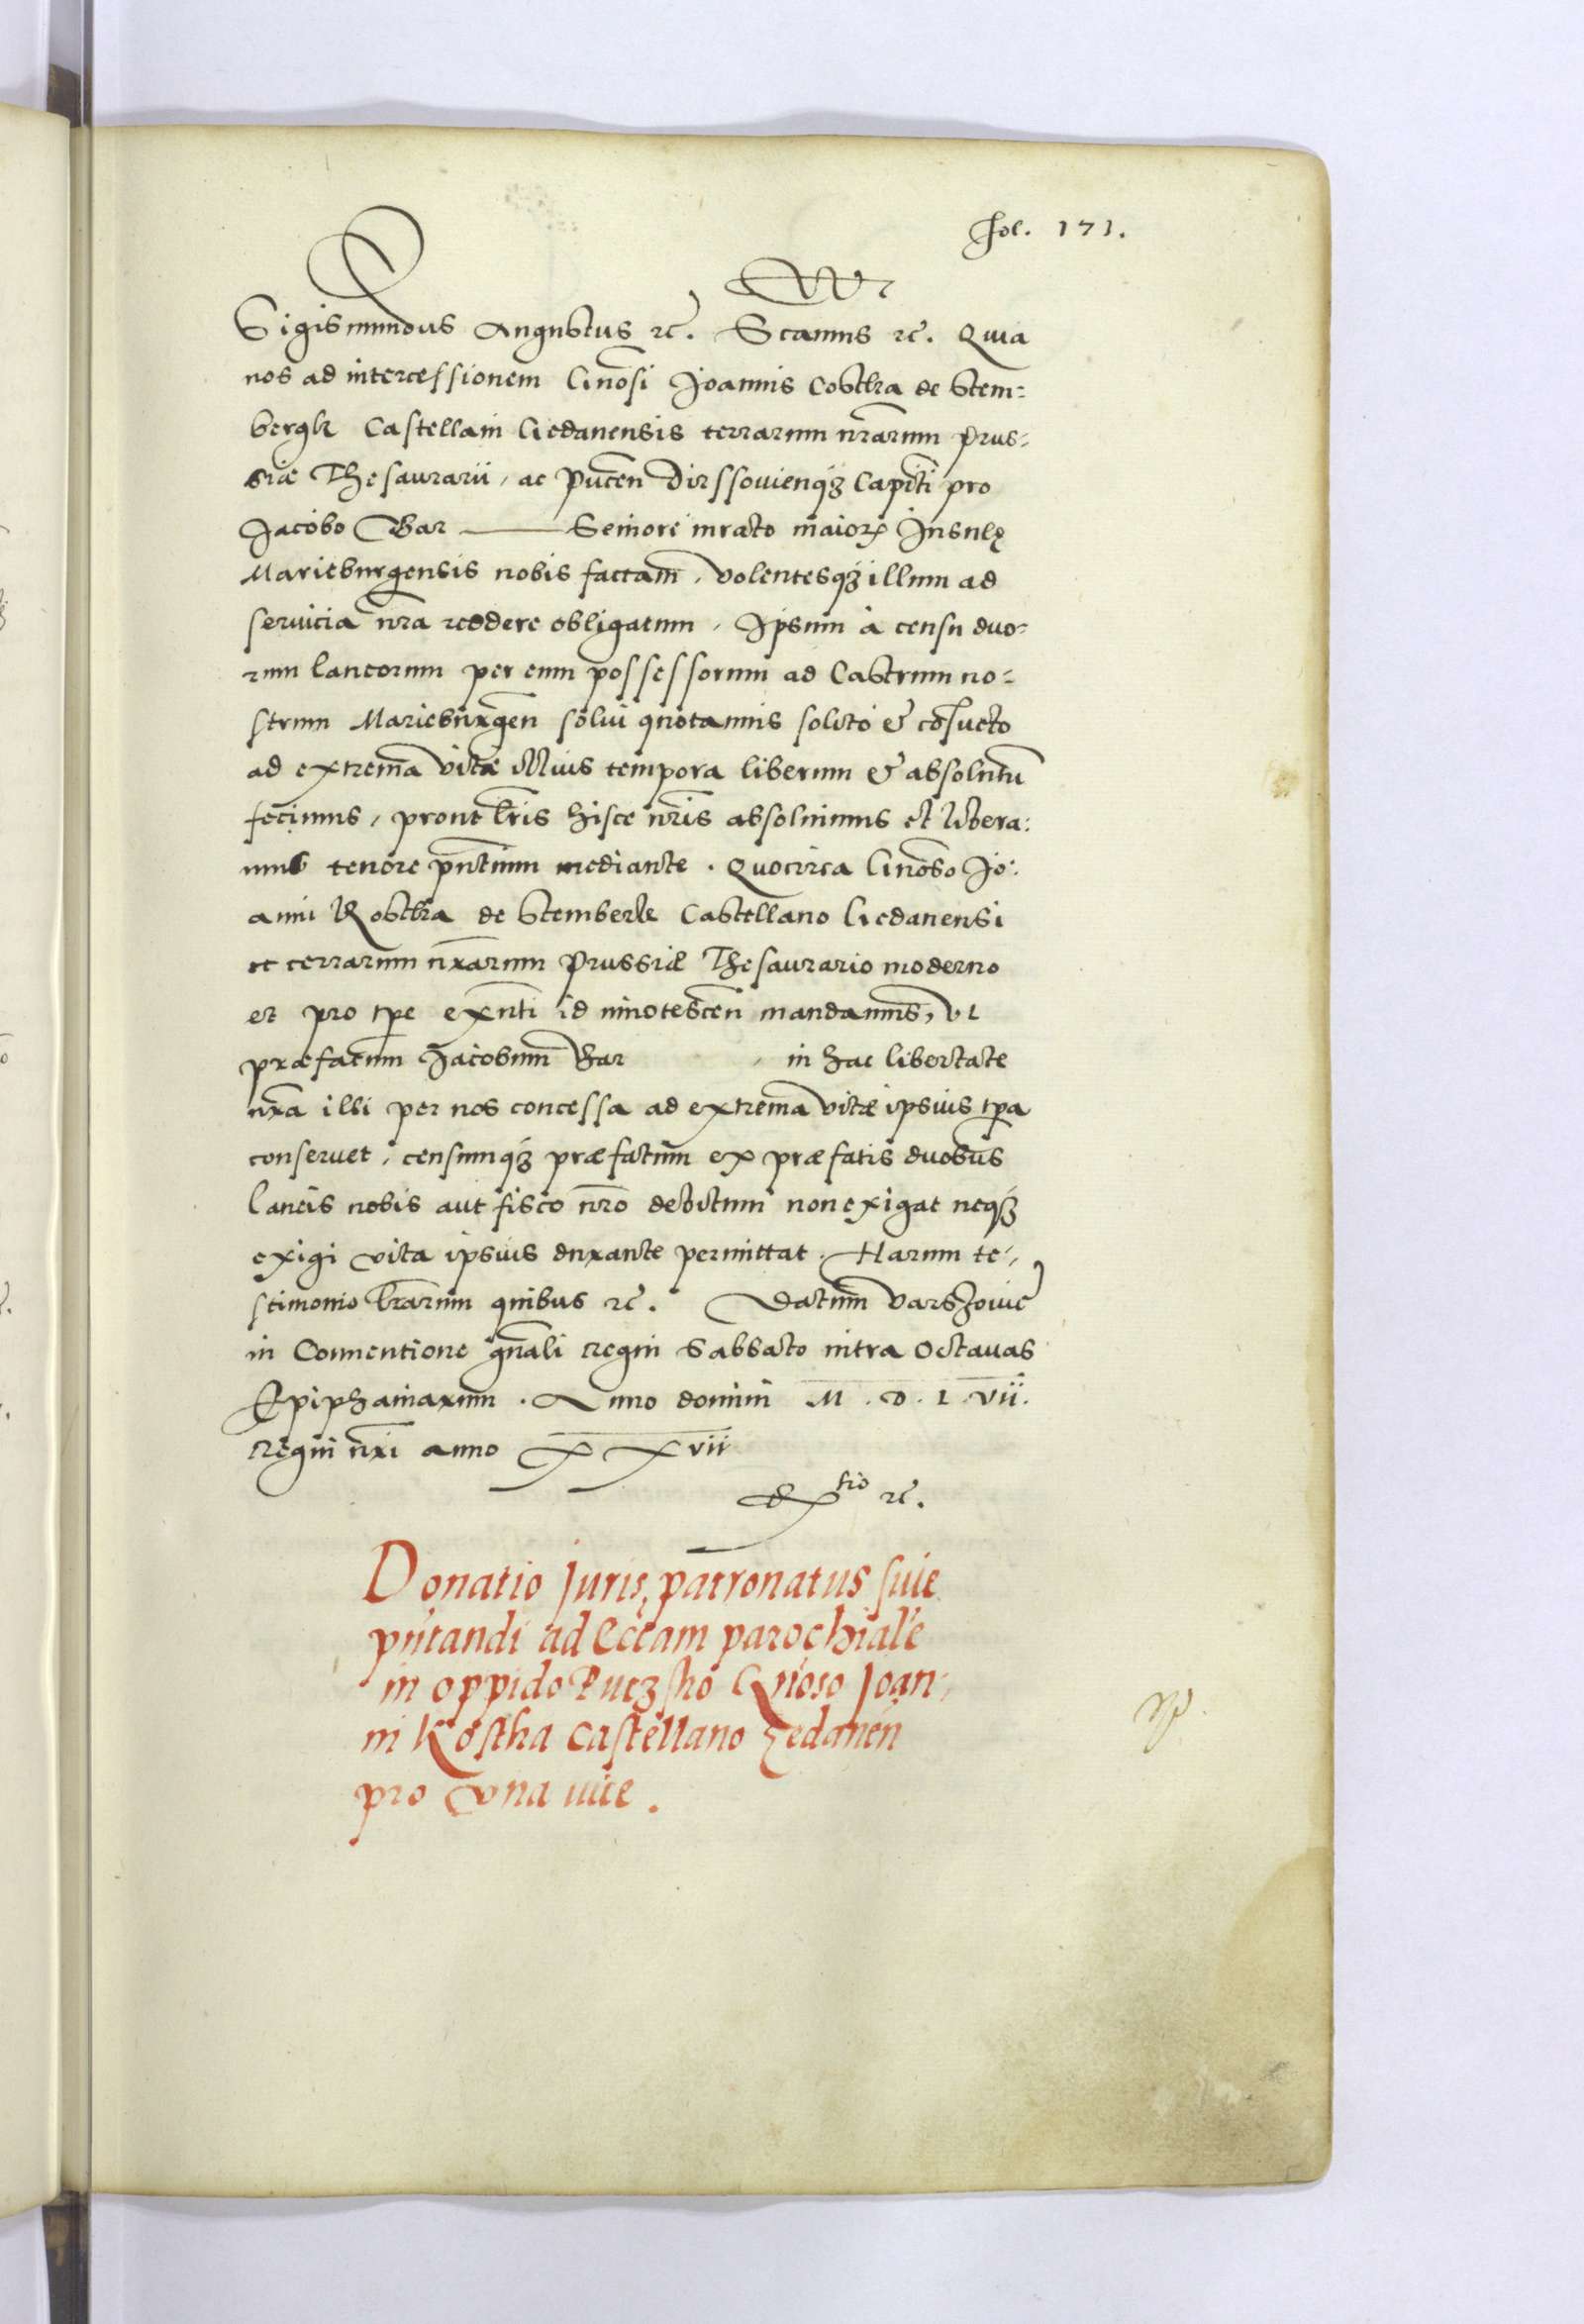 Fol. 171.
Sigismundus Augustus rc̃. Scamus rc̃. Quia
nos ad intercessionem Gnōsi Joannis Costka de Stem:
bergk Castellani Gedanensis terrarum nr̄arum Prus:
siæ Thesaurarii, ac Pucēn Dirssouienqȝ Capīti pro
Jacobo Bar — Seniore iurato maioꝝ Insulę
Marieburgensis nobis factam̄, volentesqȝ illum ad
seruicia nr̄a reddere obligatum, Ipsum à censu duo:
rum laneorum per eum possessorum ad Castrum no:
strum Marieburgēn solui quotannis solito & cōsueto
ad extremā vitæ illius tempora liberum & absolutū
fecimus, prout lr̄is hisce nr̄is absoluimus et libera:
mus tenore pn̄tium mediante. Quocirca Gnōso Jo:
anni Kostka de Stemberk Castellano Gedanensi
et terrarum nr̄arum Prussiæ Thesaurario moderno
et pro tp̄e exn̄ti id innotescēn mandamus, vt
præfatum Jacobum Bar in hac libertate
nr̄a illi per nos concessa ad extremā vitæ ipsius tp̄a
conseruet, censumqȝ præfatum ex præfatis duobus
laneis nobis aut fisco nr̄o debitum non exigat neqȝ
exigi vita ipsius durante permittat. Harum te:
stimonio lr̄arum quibus rc̃. Datum Varszouię
in Conuentione gn̄ali Regni Sabbato intra Octauas
Epiphaniarum. Anno domini M. D. L vii.
Regni nr̄i anno XXvii
Ex tio rc̃.
Donatio Juris patronatus siue
pn̄tandi ad Eccām parochialē
in oppido Puczsko Gn̄oso Joan:
ni Kostka Castellano Gedanēn
pro vna uice.